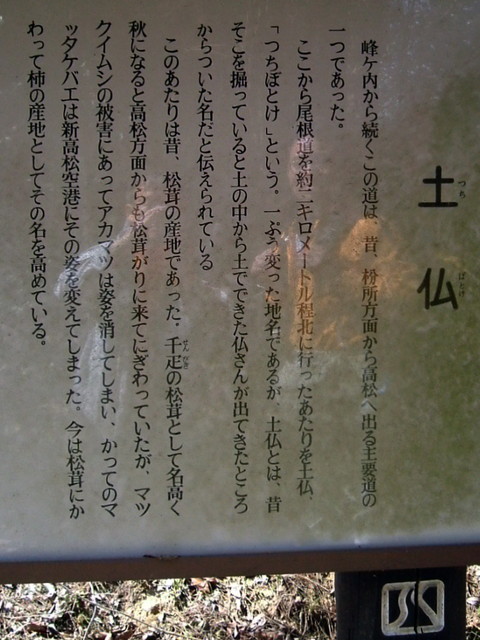 土仏
つち
ぼとけ
峰ケ内から続くこの道は、昔、枌所方面から高松へ出る主要道の
一つであった。
ここから尾根道を約二キロメートル程北に行ったあたりを土仏、
「つちぼとけ」という。一ぷう変った地名であるが、土仏とは、昔
そこを掘っていると土の中から土でできた仏さんが出てきたところ
からついた名だと伝えられている
このあたりは昔、松茸の産地であった。千疋の松茸として名高く
せんびき
秋になると高松方面からも松茸がりに来てにぎわっていたが、マツ
クイムシの被害にあってアカマツは姿を消してしまい、かってのマ
ッタケバエは新高松空港にその姿を変えてしまった。今は松茸にか
わって柿の産地としてその名を高めている。